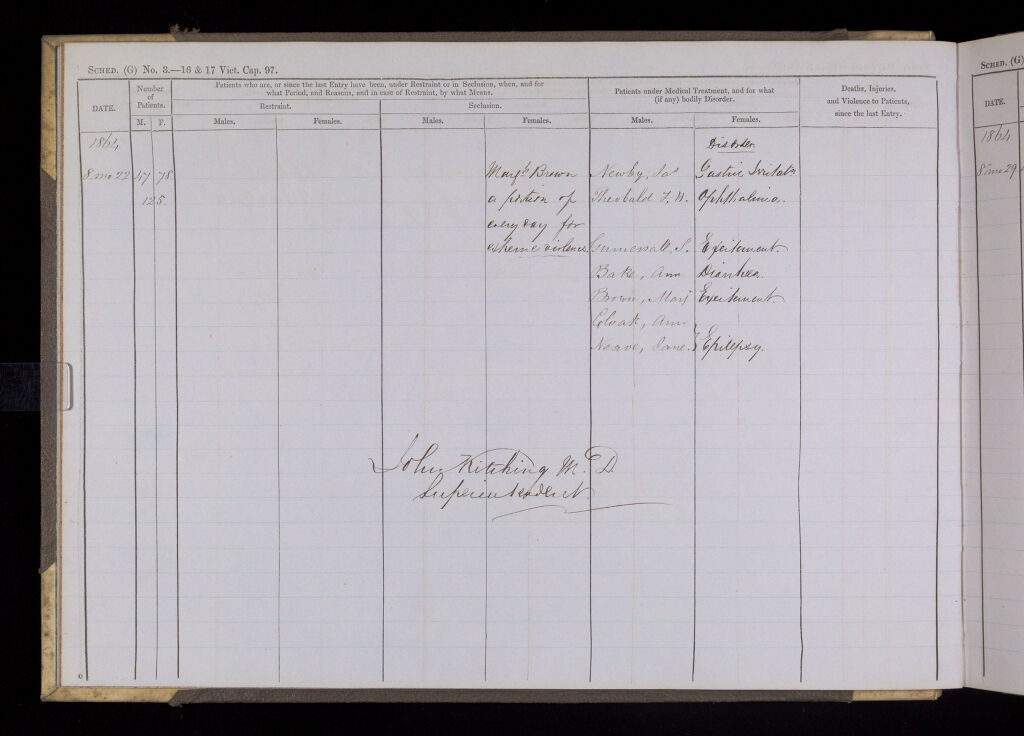 SCHED. (G) No. 3.—16 & 17 Vict. Cap. 97.
DATE.
Number of Patients.
M. F.
Patients who are, or since the last Entry have been, under Restraint or in Seclusion, when, and for
what Period, and Reasons, and in case of Restraint, by what Means.
Restraint.
Seclusion.
Males. Females. Males. Females.
Patients under Medical Treatment, and for what
(if any) bodily Disorder.
Males. Females.
Deaths, Injuries,
and Violence to Patients,
since the last Entry.
1864
Disorder
8 mo 22 47 78 Margt Brown Newby, Jas Gastric Irritatn
125. a portion of Theobald F. H. Ophthalmia.
every day for
extreme violence Gummersall, S. Excitement.
Bake, Ann Diarrhea.
Brown, Marg Excitement.
Cloak, Ann
Neave, Jane. } Epilepsy.
John Kitching M.D
Superintendent
0
SCHED. (G)
DATE.
1864
8 mo 29